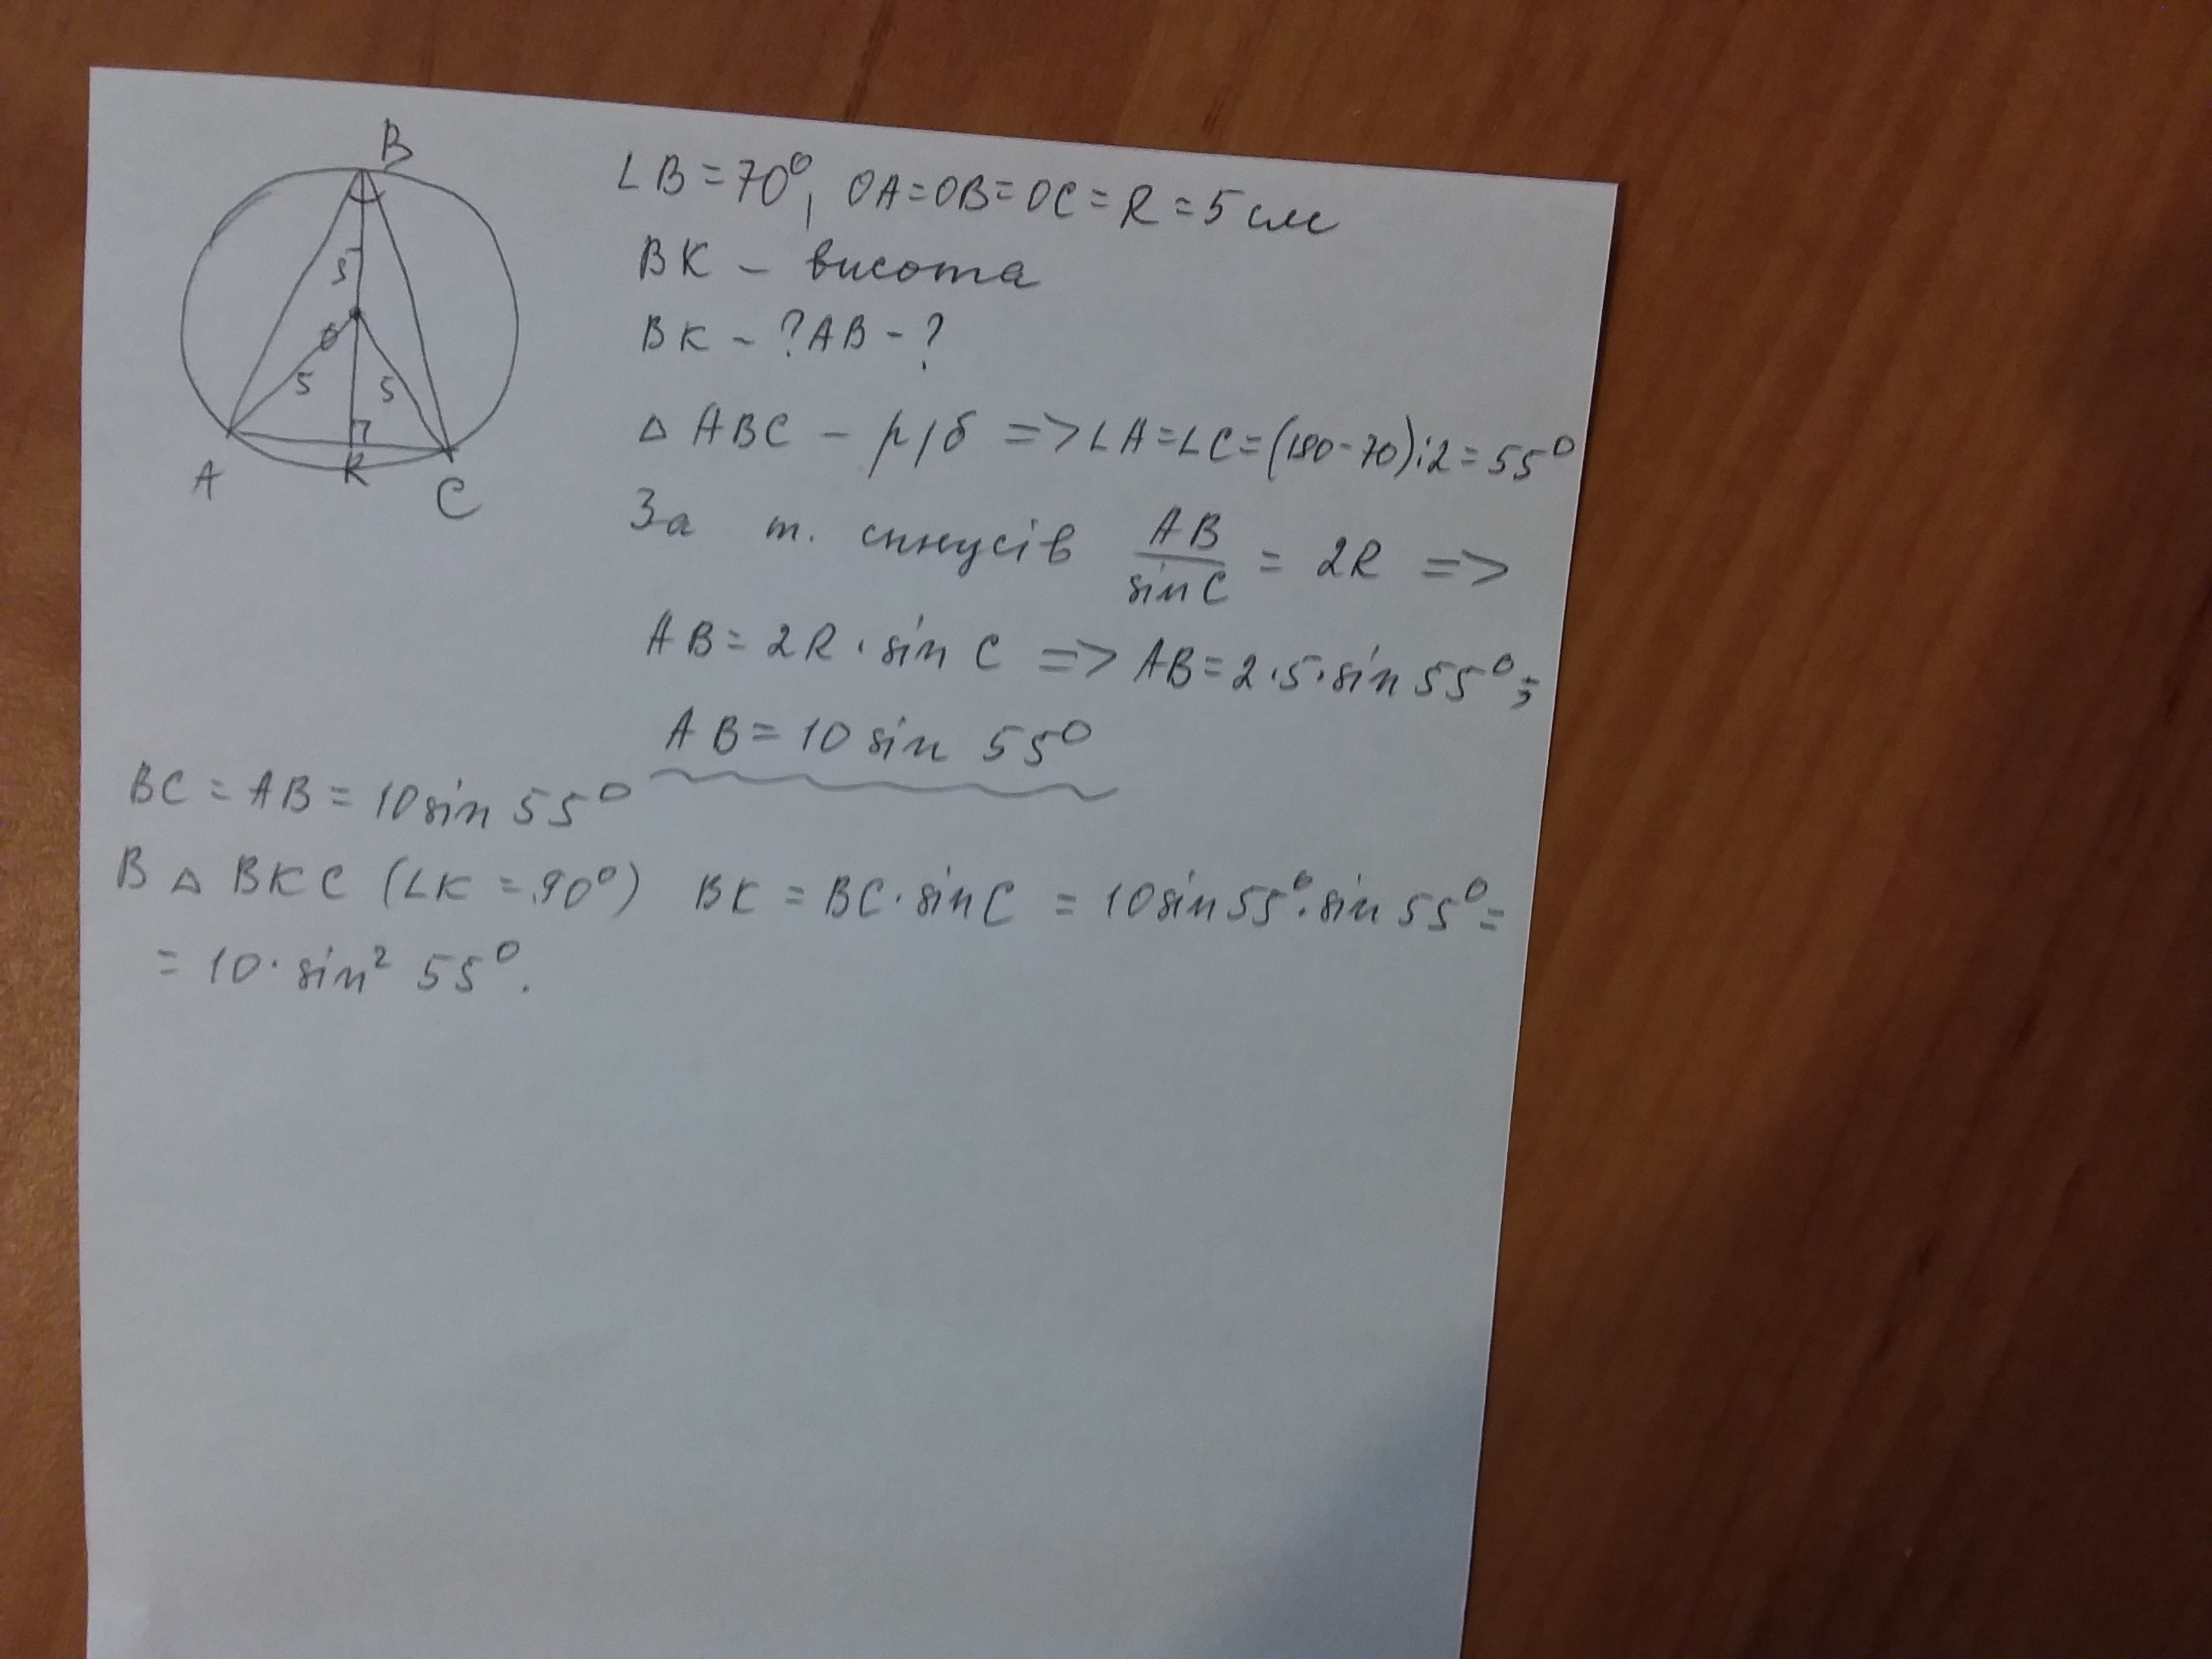 B
5
O
5 5
A K C
∠B = 70°, OA = OB = OC = R = 5 см
BK – висота
BK – ? AB – ?
△ ABC – р/б => ∠A = ∠C = (180 - 70) : 2 = 55°
За т. синусів AB/sin C = 2R =>
AB = 2R · sin C => AB = 2 · 5 · sin 55°;
AB = 10 sin 55°
BC = AB = 10 sin 55°
В △ BKC (∠K = 90°) BK = BC · sin C = 10 sin 55° · sin 55° =
= 10 · sin² 55°.